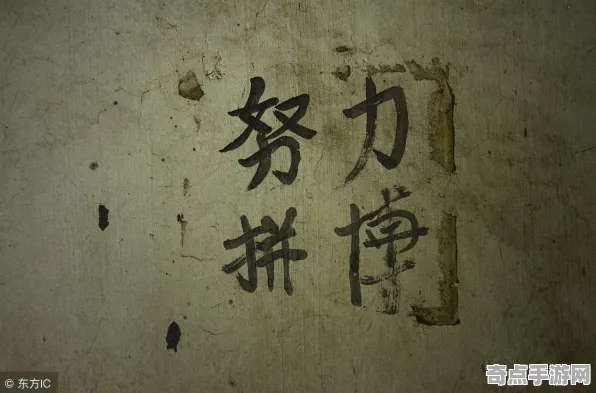 努力
拼博
© 东方IC
奇点手游网